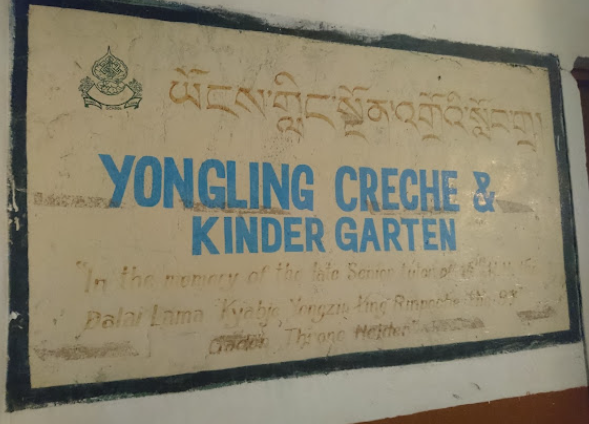 ཡོངས་གླིང་སྔོན་འགྲོའི་སློབ་གྲྭ།
YONGLING CRECHE &
KINDER GARTEN
"In the memory of the late Senior Tutor of
Dalai Lama "Kyabje Yongzin Ling Rinpoche the
Gaden Throne Holder"